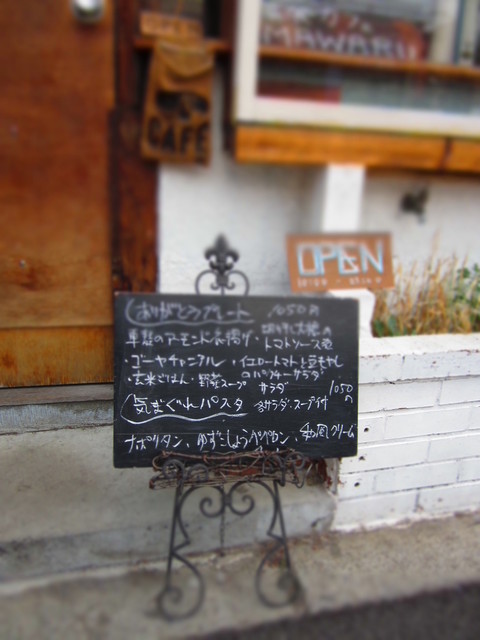 MAWARU
CAFE
OPEN
ありがとうプレート 1050円
車麩のアーモンド衣揚げ・切り干し大根のトマトソース煮
・ゴーヤチャンプルー・イエロートマトと豆もやしのバジサーサラダ
・玄米ごはん・野菜スープ サラダ
気まぐれパスタ 各サラダ・スープ付 1050円
ナポリタン、ゆずこしょうペペロン、和風クリーム